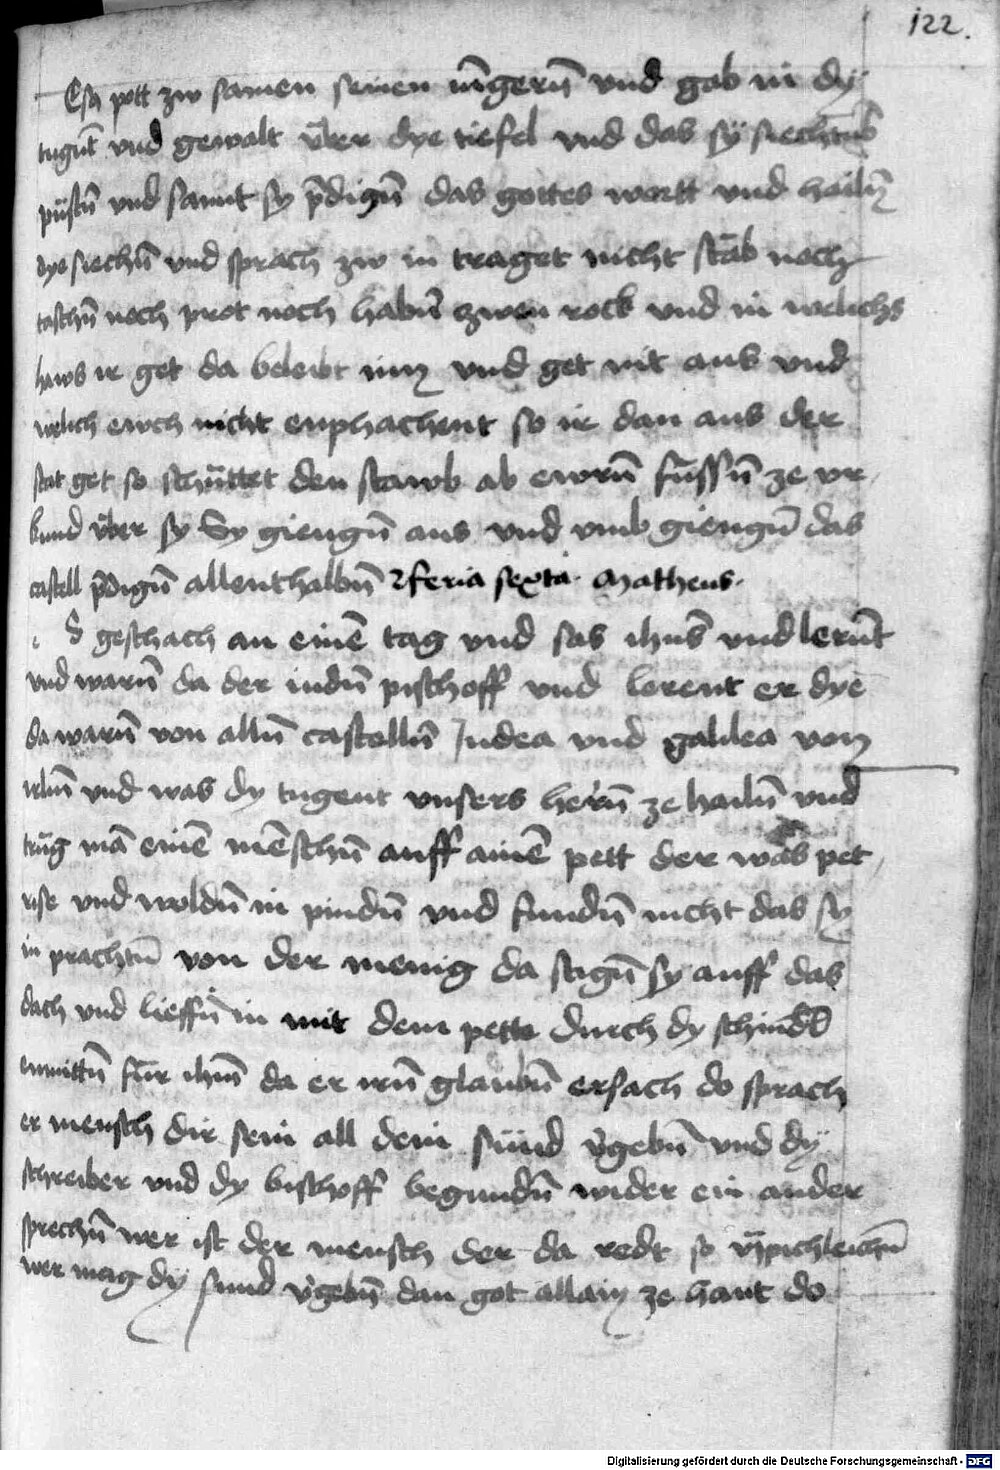 122.
Esq pott zw samen seinen iūngerñ vnd gab in dÿ
tugñt vnd gewalt v̈ber dye tiefel vnd das sÿ siechtūb
püstñ vnd sannt sy p̄digñ das gottes wortt vnd hailñ
dye siechñ vnd sprach zw in traget nicht stab noch
taschñ noch prot noch habñ zwen rock vnd in welichs
haws ir get da beleibt inn vnd get nit aus vnd
welich ewch nicht enphachent so ir dan aus der
stat get so schüttet den stawb ab ewrñ füssñ ze vr
kund v̈ber sy Sy giengñ aus vnd vmb giengñ das
castell p̄digñ allenthalbñ feria sexta. Matheus.
S geschach an einē tag vnd sas ihūs vnd lerñt
vnd warñ da der iudñ pischoff vnd lerent er dye
da warñ von allñ castellñ Judea vnd galilea von
irlm̄ vnd was dy tugent vnsers herñ ze hailñ vnd
trüg mā einē mēschñ auff ainē pett der was pet
rise vnd woldñ in pindñ vnd fundñ nicht das sy
in prachtñ von der menig da stigñ sy auff das
dach vnd lieffñ in mit dem pette durch dy schindl
enmittñ für ihm̄ da er irñ glaubñ ersach do sprach
er mensch dir sein all dein sünd v̉gebñ vnd dÿ
schreiber vnd dy bischoff begundñ wider ein ander
sprechñ wer ist der mensch der da redt so v̈ppichleichñ
wer mag dy sund v̉gebñ dan got allain ze hant do
Digitalisierung gefördert durch die Deutsche Forschungsgemeinschaft - DFG